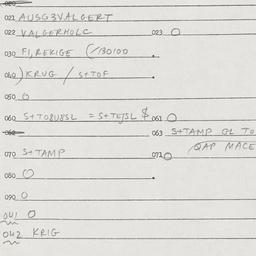 020
021 AUSG3VALGERT
022 VALGERHOLC 023 O
030 FI,REKIGE (/30100
040 ) KRUG / S+TOF
050 O
060 S+TO8U8SL = S+TEJSL $ 061 O
062 063 S+TAMP GL TO
QAP MACE
070 S+TAMP 071 O
080 O
090 O
041 O
042 KRIG